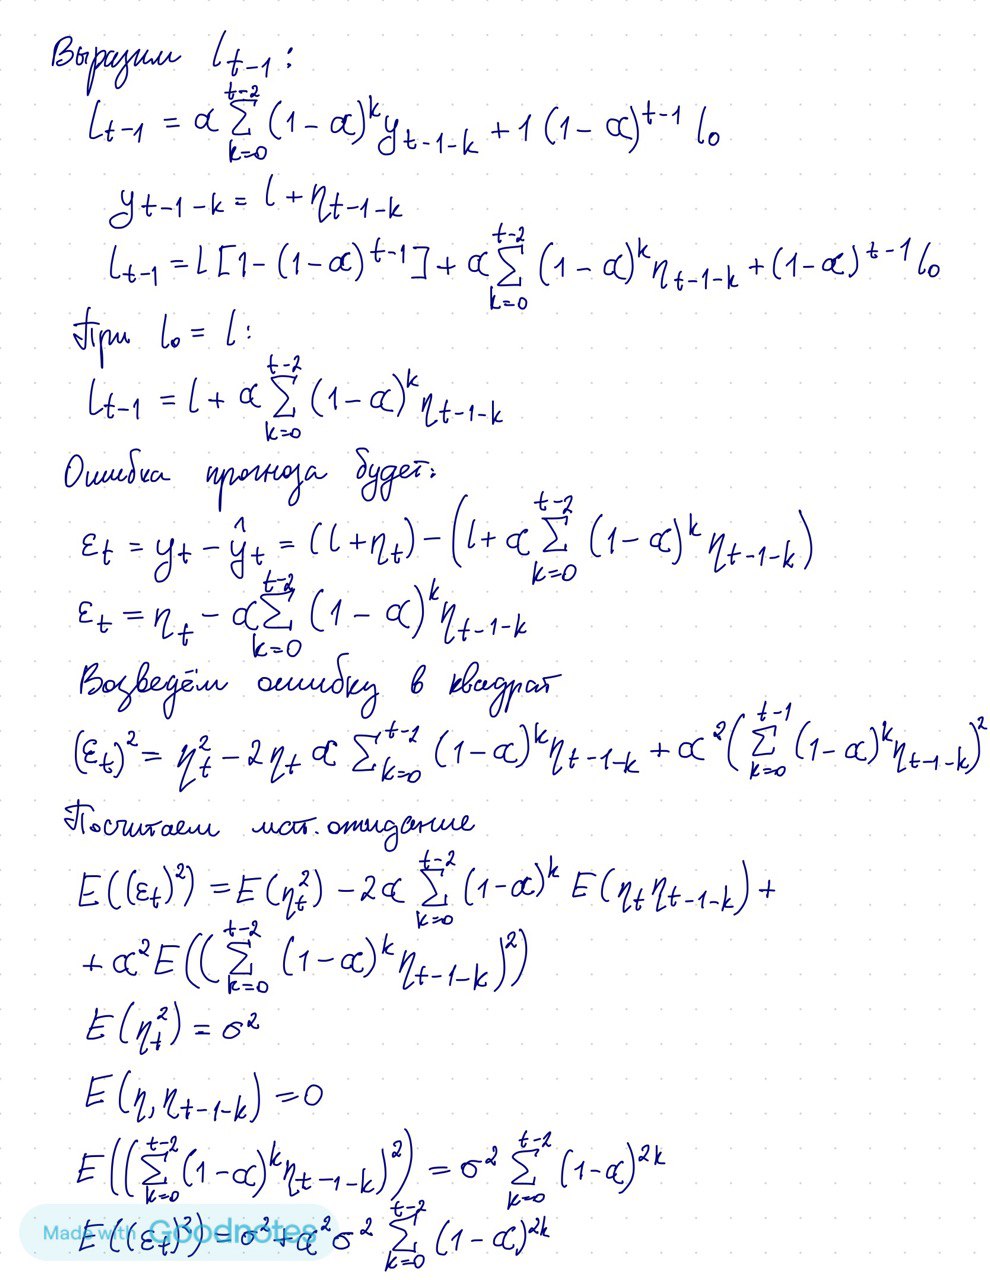 Выразим l_{t-1}:
l_{t-1} = α Σ_{k=0}^{t-2} (1-α)^k y_{t-1-k} + 1(1-α)^{t-1} l_0
y_{t-1-k} = l + η_{t-1-k}
l_{t-1} = l[1-(1-α)^{t-1}] + α Σ_{k=0}^{t-2} (1-α)^k η_{t-1-k} + (1-α)^{t-1} l_0
При l_0 = l:
l_{t-1} = l + α Σ_{k=0}^{t-2} (1-α)^k η_{t-1-k}
Ошибка прогноза будет:
ε_t = y_t - ŷ_t = (l+η_t) - (l + α Σ_{k=0}^{t-2} (1-α)^k η_{t-1-k})
ε_t = η_t - α Σ_{k=0}^{t-2} (1-α)^k η_{t-1-k}
Возведём ошибку в квадрат
(ε_t)^2 = η_t^2 - 2η_t α Σ_{k=0}^{t-2} (1-α)^k η_{t-1-k} + α^2 (Σ_{k=0}^{t-1} (1-α)^k η_{t-1-k})^2
Посчитаем мат. ожидание
E((ε_t)^2) = E(η_t^2) - 2α Σ_{k=0}^{t-2} (1-α)^k E(η_t η_{t-1-k}) +
+ α^2 E((Σ_{k=0}^{t-2} (1-α)^k η_{t-1-k})^2)
E(η_t^2) = σ^2
E(η, η_{t-1-k}) = 0
E((Σ_{k=0}^{t-2} (1-α)^k η_{t-1-k})^2) = σ^2 Σ_{k=0}^{t-2} (1-α)^{2k}
E((ε_t)^2) = σ^2 + α^2 σ^2 Σ_{k=0}^{t-2} (1-α)^{2k}
Made with Goodnotes